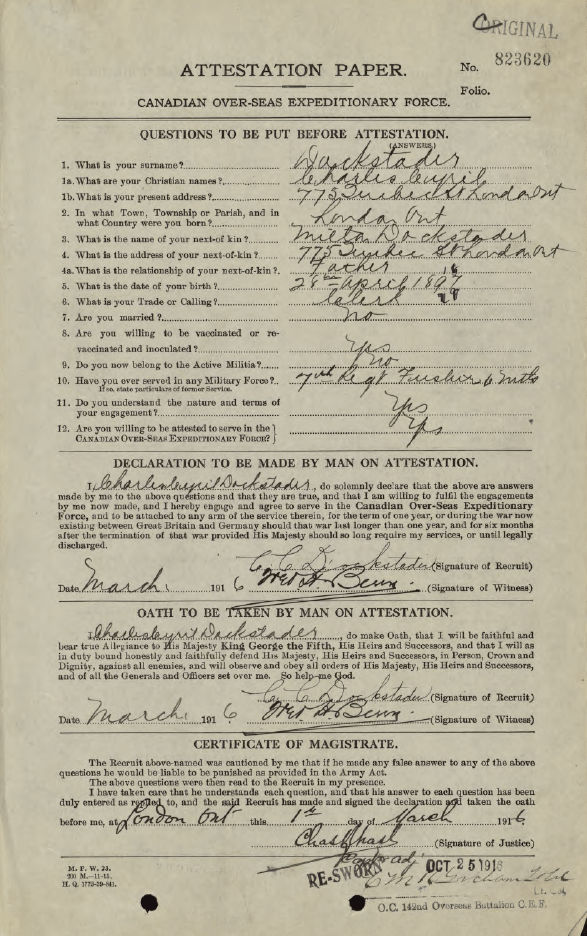 ORIGINAL
ATTESTATION PAPER.
No. 823620
Folio.
CANADIAN OVER-SEAS EXPEDITIONARY FORCE.
QUESTIONS TO BE PUT BEFORE ATTESTATION.
(ANSWERS)
1. What is your surname? Dockstader
1a. What are your Christian names? Charles Cyril
1b. What is your present address? 775 Quebec St London Ont
2. In what Town, Township or Parish, and in
what Country were you born? London Ont
3. What is the name of your next-of kin? Milton Dockstader
4. What is the address of your next-of-kin? 775 Quebec St London Ont
4a. What is the relationship of your next-of-kin? Father
5. What is the date of your birth? 28th April 1897
6. What is your Trade or Calling? Clerk
7. Are you married? No
8. Are you willing to be vaccinated or re-
vaccinated and inoculated? Yes
9. Do you now belong to the Active Militia? No
10. Have you ever served in any Military Force? 7th Regt Fusiliers 6 Mths
If so, state particulars of former Service.
11. Do you understand the nature and terms of
your engagement? Yes
12. Are you willing to be attested to serve in the
CANADIAN OVER-SEAS EXPEDITIONARY FORCE? Yes
DECLARATION TO BE MADE BY MAN ON ATTESTATION.
I, Charles Cyril Dockstader, do solemnly declare that the above are answers
made by me to the above questions and that they are true, and that I am willing to fulfil the engagements
by me now made, and I hereby engage and agree to serve in the Canadian Over-Seas Expeditionary
Force, and to be attached to any arm of the service therein, for the term of one year, or during the war now
existing between Great Britain and Germany should that war last longer than one year, and for six months
after the termination of that war provided His Majesty should so long require my services, or until legally
discharged.
C. C. Dockstader (Signature of Recruit)
Date March 1916 (Signature of Witness)
OATH TO BE TAKEN BY MAN ON ATTESTATION.
I, Charles Cyril Dockstader, do make Oath, that I will be faithful and
bear true Allegiance to His Majesty King George the Fifth, His Heirs and Successors, and that I will as
in duty bound honestly and faithfully defend His Majesty, His Heirs and Successors, in Person, Crown and
Dignity, against all enemies, and will observe and obey all orders of His Majesty, His Heirs and Successors,
and of all the Generals and Officers set over me. So help me God.
C. C. Dockstader (Signature of Recruit)
Date March 1916 (Signature of Witness)
CERTIFICATE OF MAGISTRATE.
The Recruit above-named was cautioned by me that if he made any false answer to any of the above
questions he would be liable to be punished as provided in the Army Act.
The above questions were then read to the Recruit in my presence.
I have taken care that he understands each question, and that his answer to each question has been
duly entered as replied to, and the said Recruit has made and signed the declaration and taken the oath
before me, at London Ont this 1st day of March 1916
(Signature of Justice)
M. F. W. 23.
H. Q. 1772-39-841.
RE-SWORN
OCT 25 1916
Lt. Col
O.C. 142nd Overseas Battalion C.E.F.